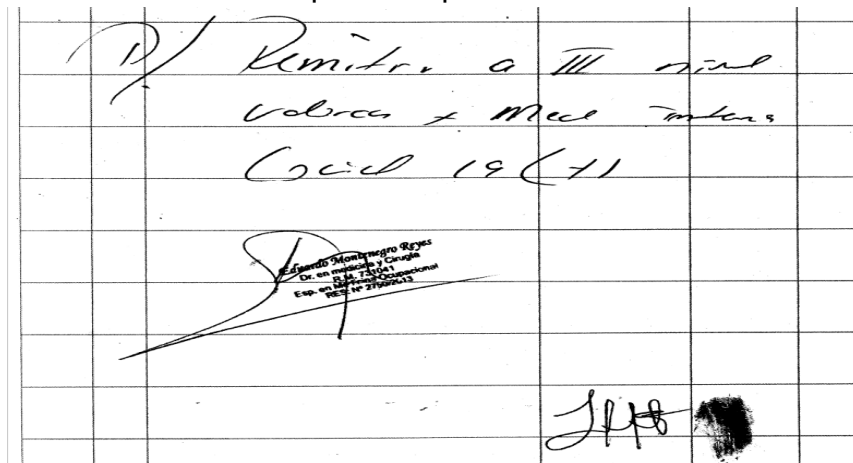 P/ Remitir a III nivel
valorar x Med interna
Covid 19 (+)
Eduardo Montenegro Reyes
Dr. en medicina y Cirugía
R.M. 731041
Esp. en Medicina Ocupacional
RES. Nº